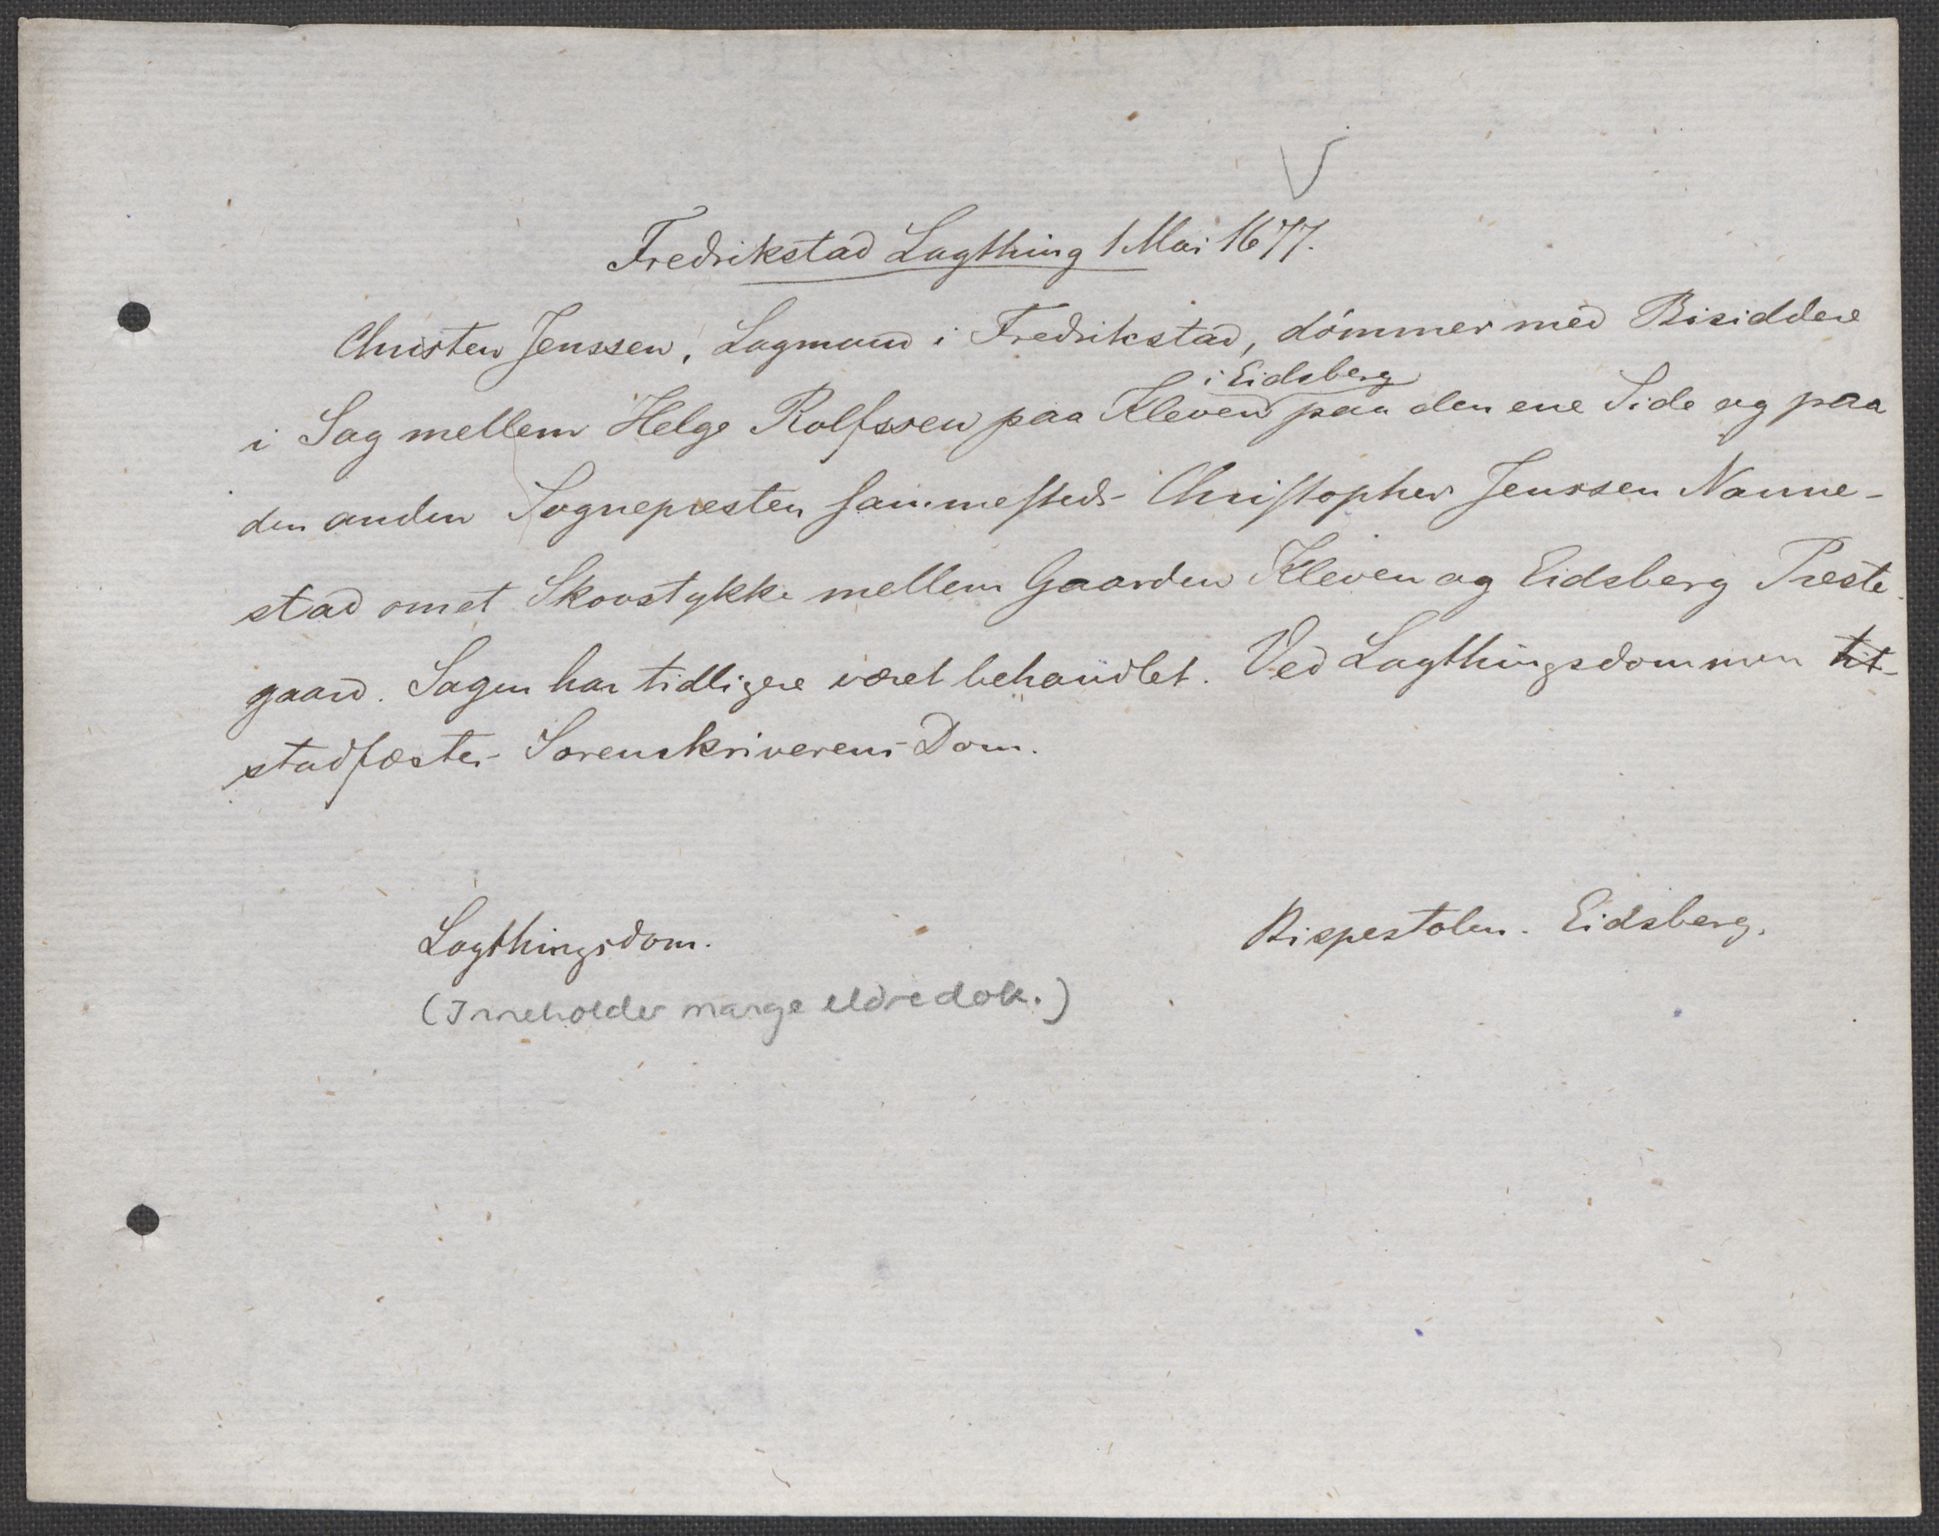 Fredrikstad Lagthing 1 Mai 1677.
Christen Jenssen, Lagmand i Fredrikstad, dömmer med Bisiddere
i Eidsberg
i Sag mellem Helge Rolfssen paa Kleven paa den ene Side og paa
den anden Sognepresten sammesteds Christopher Jenssen Nanne-
stad om et Skovstykke mellem Gaarden Kleven og Eidsberg Preste-
gaard. Sagen har tidligere været behandlet. Ved Lagthingsdommen
stadfæstes Sorenskriverens Dom.
Lagthingsdom.
Bispestolen. Eidsberg.
(Inneholder mange eldre dok.)